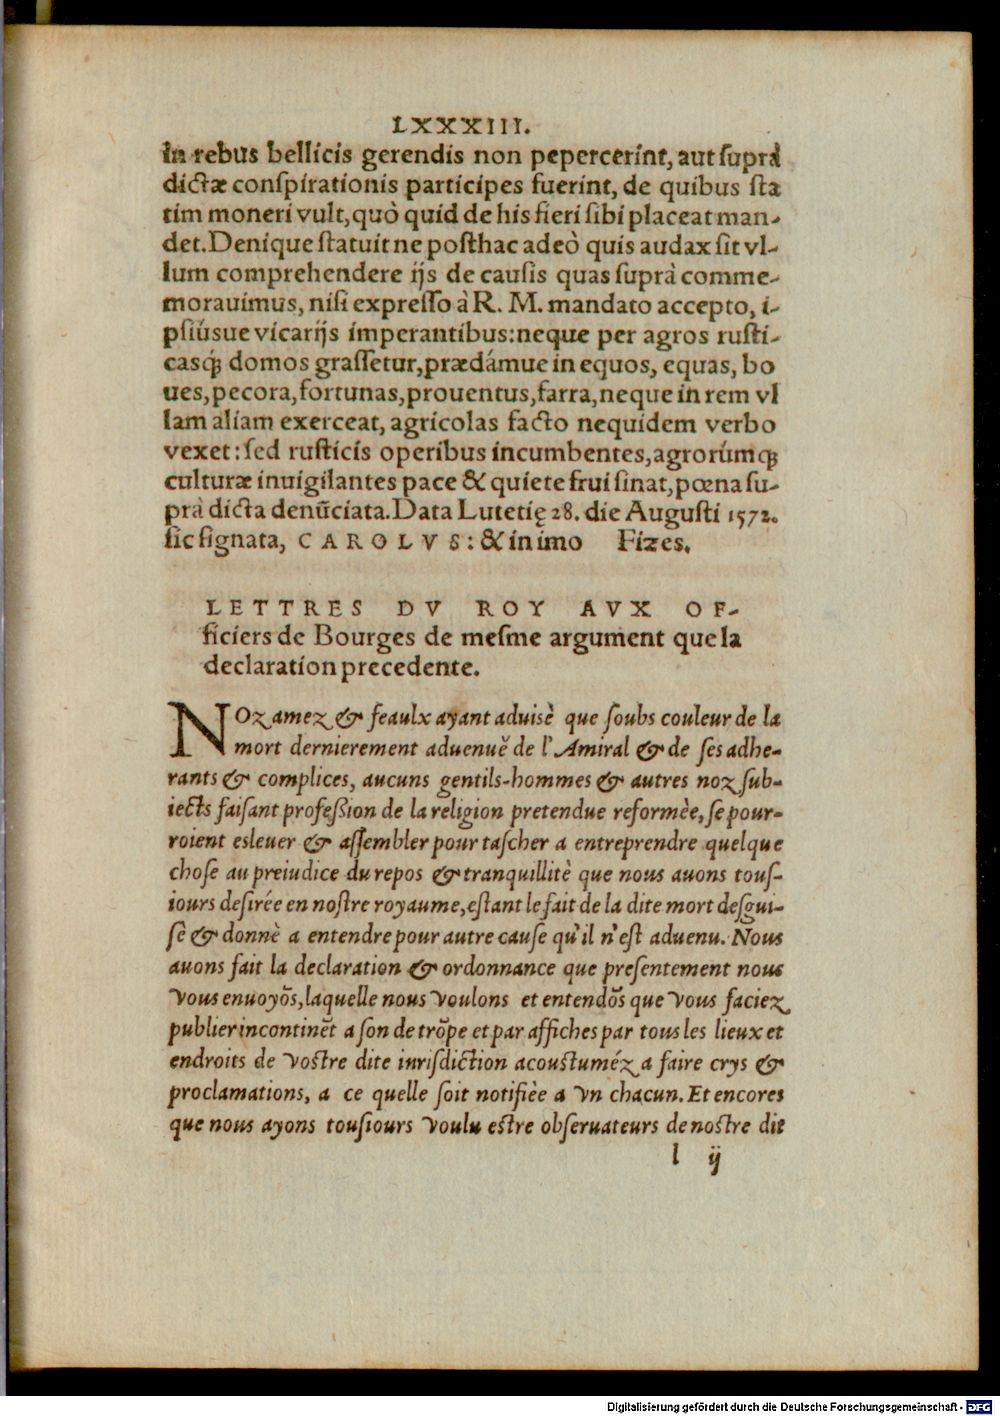 LXXXIII.
in rebus bellicis gerendis non pepercerint, aut suprà
dictæ conspirationis participes fuerint, de quibus sta
tim moneri vult, quò quid de his fieri sibi placeat man-
det. Denique statuit ne posthac adeò quis audax sit vl-
lum comprehendere ijs de causis quas suprà comme-
morauimus, nisi expresso à R. M. mandato accepto, i-
psiúsue vicarijs imperantibus: neque per agros rusti-
casq́; domos grassetur, prædámue in equos, equas, bo
ues, pecora, fortunas, prouentus, farra, neque in rem vl
lam aliam exerceat, agricolas facto nequidem verbo
vexet: sed rusticis operibus incumbentes, agrorúmq;
culturæ inuigilantes pace & quiete frui sinat, pœna su-
prà dicta denūciata. Data Lutetię 28. die Augusti 1572.
sic signata, CAROLVS: & in imo Fizes.
LETTRES DV ROY AVX OF-
ficiers de Bourges de mesme argument que la
declaration precedente.
NOz amez & feaulx ayant aduisè que soubs couleur de la
mort dernierement aduenuë de l'Amiral & de ses adhe-
rants & complices, aucuns gentils-hommes & autres noz sub-
iects faisant profession de la religion pretendue reformèe, se pour-
roient esleuer & assembler pour tascher a entreprendre quelque
chose au preiudice du repos & tranquillitè que nous auons tous-
iours desirée en nostre royaume, estant le fait de la dite mort desgui-
sè & donnè a entendre pour autre cause qu'il n'est aduenu. Nous
auons fait la declaration & ordonnance que presentement nous
vous enuoyōs, laquelle nous voulons et entendōs que vous faciez
publier incontinēt a son de trōpe et par affiches par tous les lieux et
endroits de vostre dite iurisdiction acoustuméz a faire crys &
proclamations, a ce quelle soit notifièe a vn chacun. Et encores
que nous ayons tousiours voulu estre obseruateurs de nostre dit
l ij
Digitalisierung gefördert durch die Deutsche Forschungsgemeinschaft - DFG